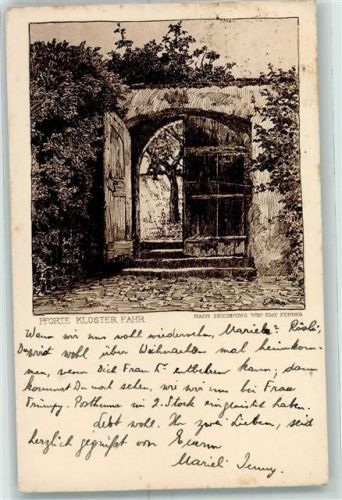 PFORTE KLOSTER FAHR
NACH ZEICHNUNG VON EMY FENNER
Wann wir uns wohl wiedersehn,
wohl über Weihnachten mal heimkom-
men, wenn Dich Frau entbehren kann; dann
kommst Du mal sehen, wie wir uns bei Frau
Posthuma im 2. Stock eingenistet haben.
Lebt wohl. Ihr zwei Lieben, seid
herzlich gegrüßt von Eurem
Marieli Jenny.